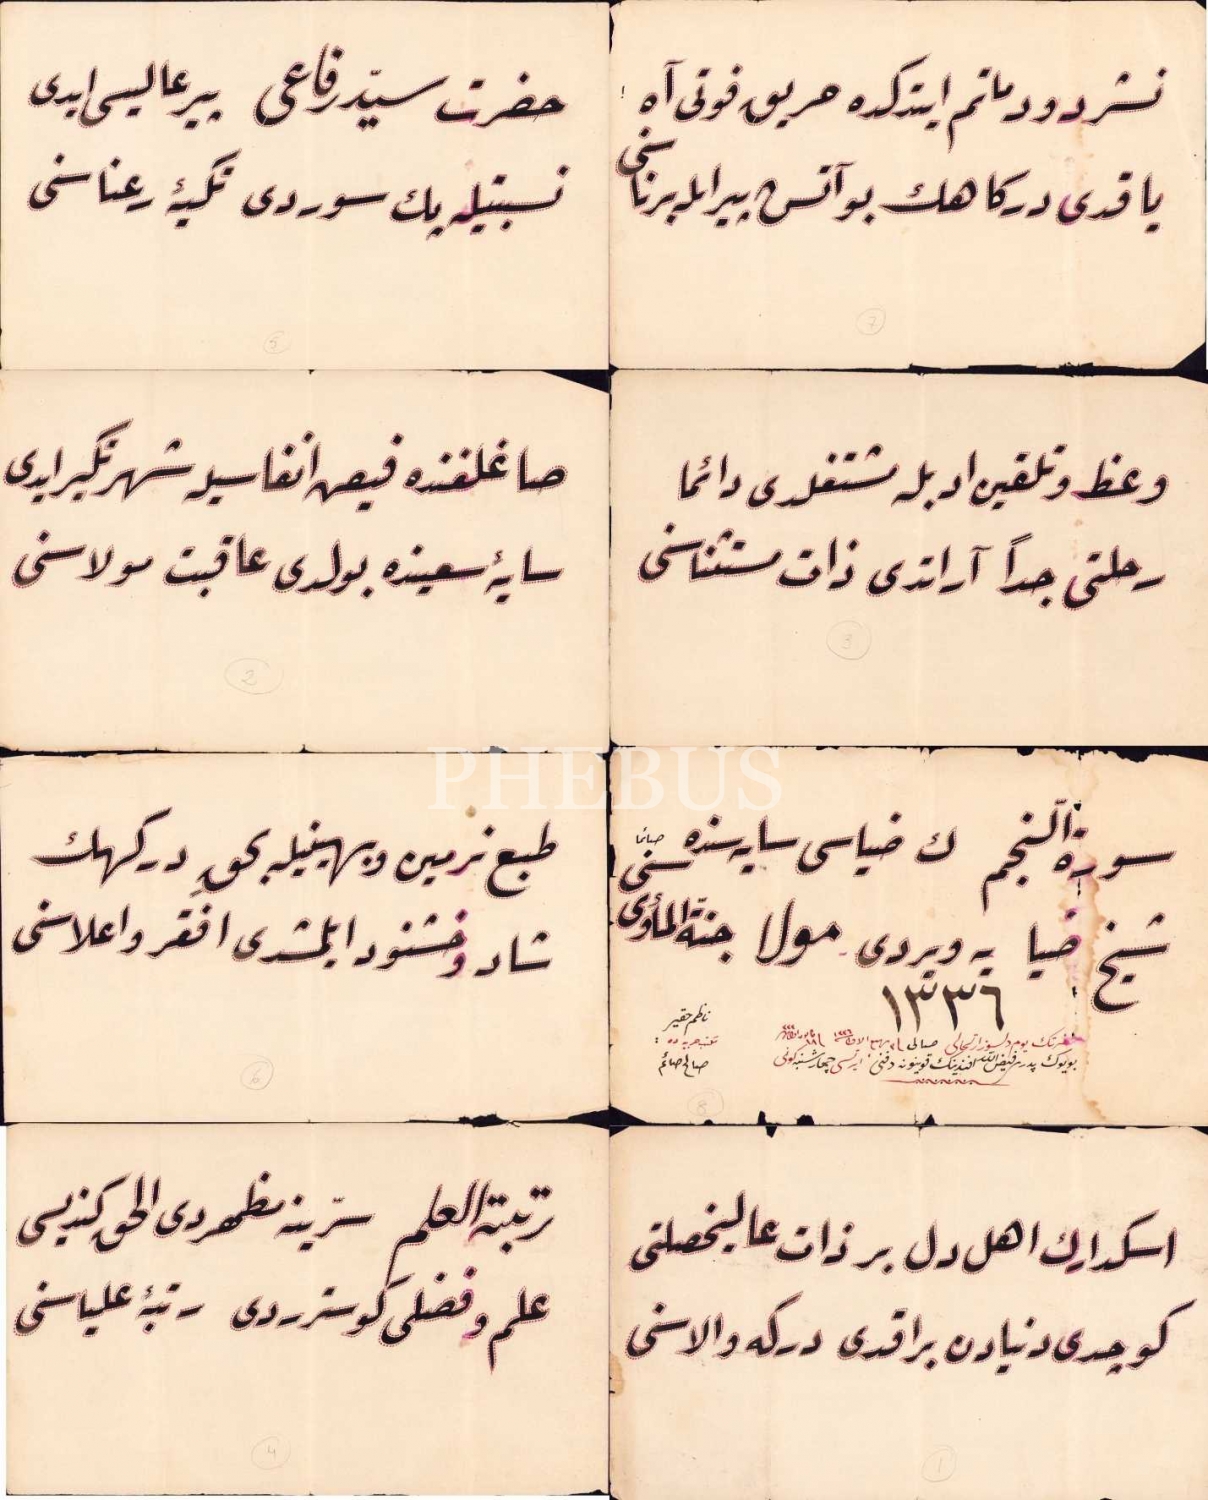 حضرت سیّد رفاعی پیر عالیسی ایدی
نسبتیله پك سوردی تكیهٔ رعناسنی
5
نشر دود ماتم ایتدكده حریق فوتی آه
یاقدی دركاهك بو آتش پیر ایله برناسنی
7
صاغلغنده فیض انفاسیله شهرتگیر ایدی
سایهٔ سعینده بولدی عاقبت مولاسنی
2
وعظ و تلقین ادبله مشتغلدی دائما
رحلتی جداً آراتدی ذات مستثناسنی
3
PHEBUS
طبع نرمین وبهینیله بحقٍ دركهك
شاد وخشنود ایلمشدی افقر و اعلاسنی
6
سورة النجم ك ضیاسی سایه سنده صائما
شیخ ضیا یه ویردی مولا جنة المأوی سنی
١٣٣٦
ناظم حقیر
صالح صائم
بویوك پدری فیض الله افندینك قوینونه دفنی
8
رتبة العلم سرّینه مظهردی الحق كندیسی
علم و فضلی كوستردی رتبهٔ علیاسنی
4
اسكدارك اهل دل بر ذات عالیخصلتی
كوچدی دنیادن براقدی دركه والاسنی
1